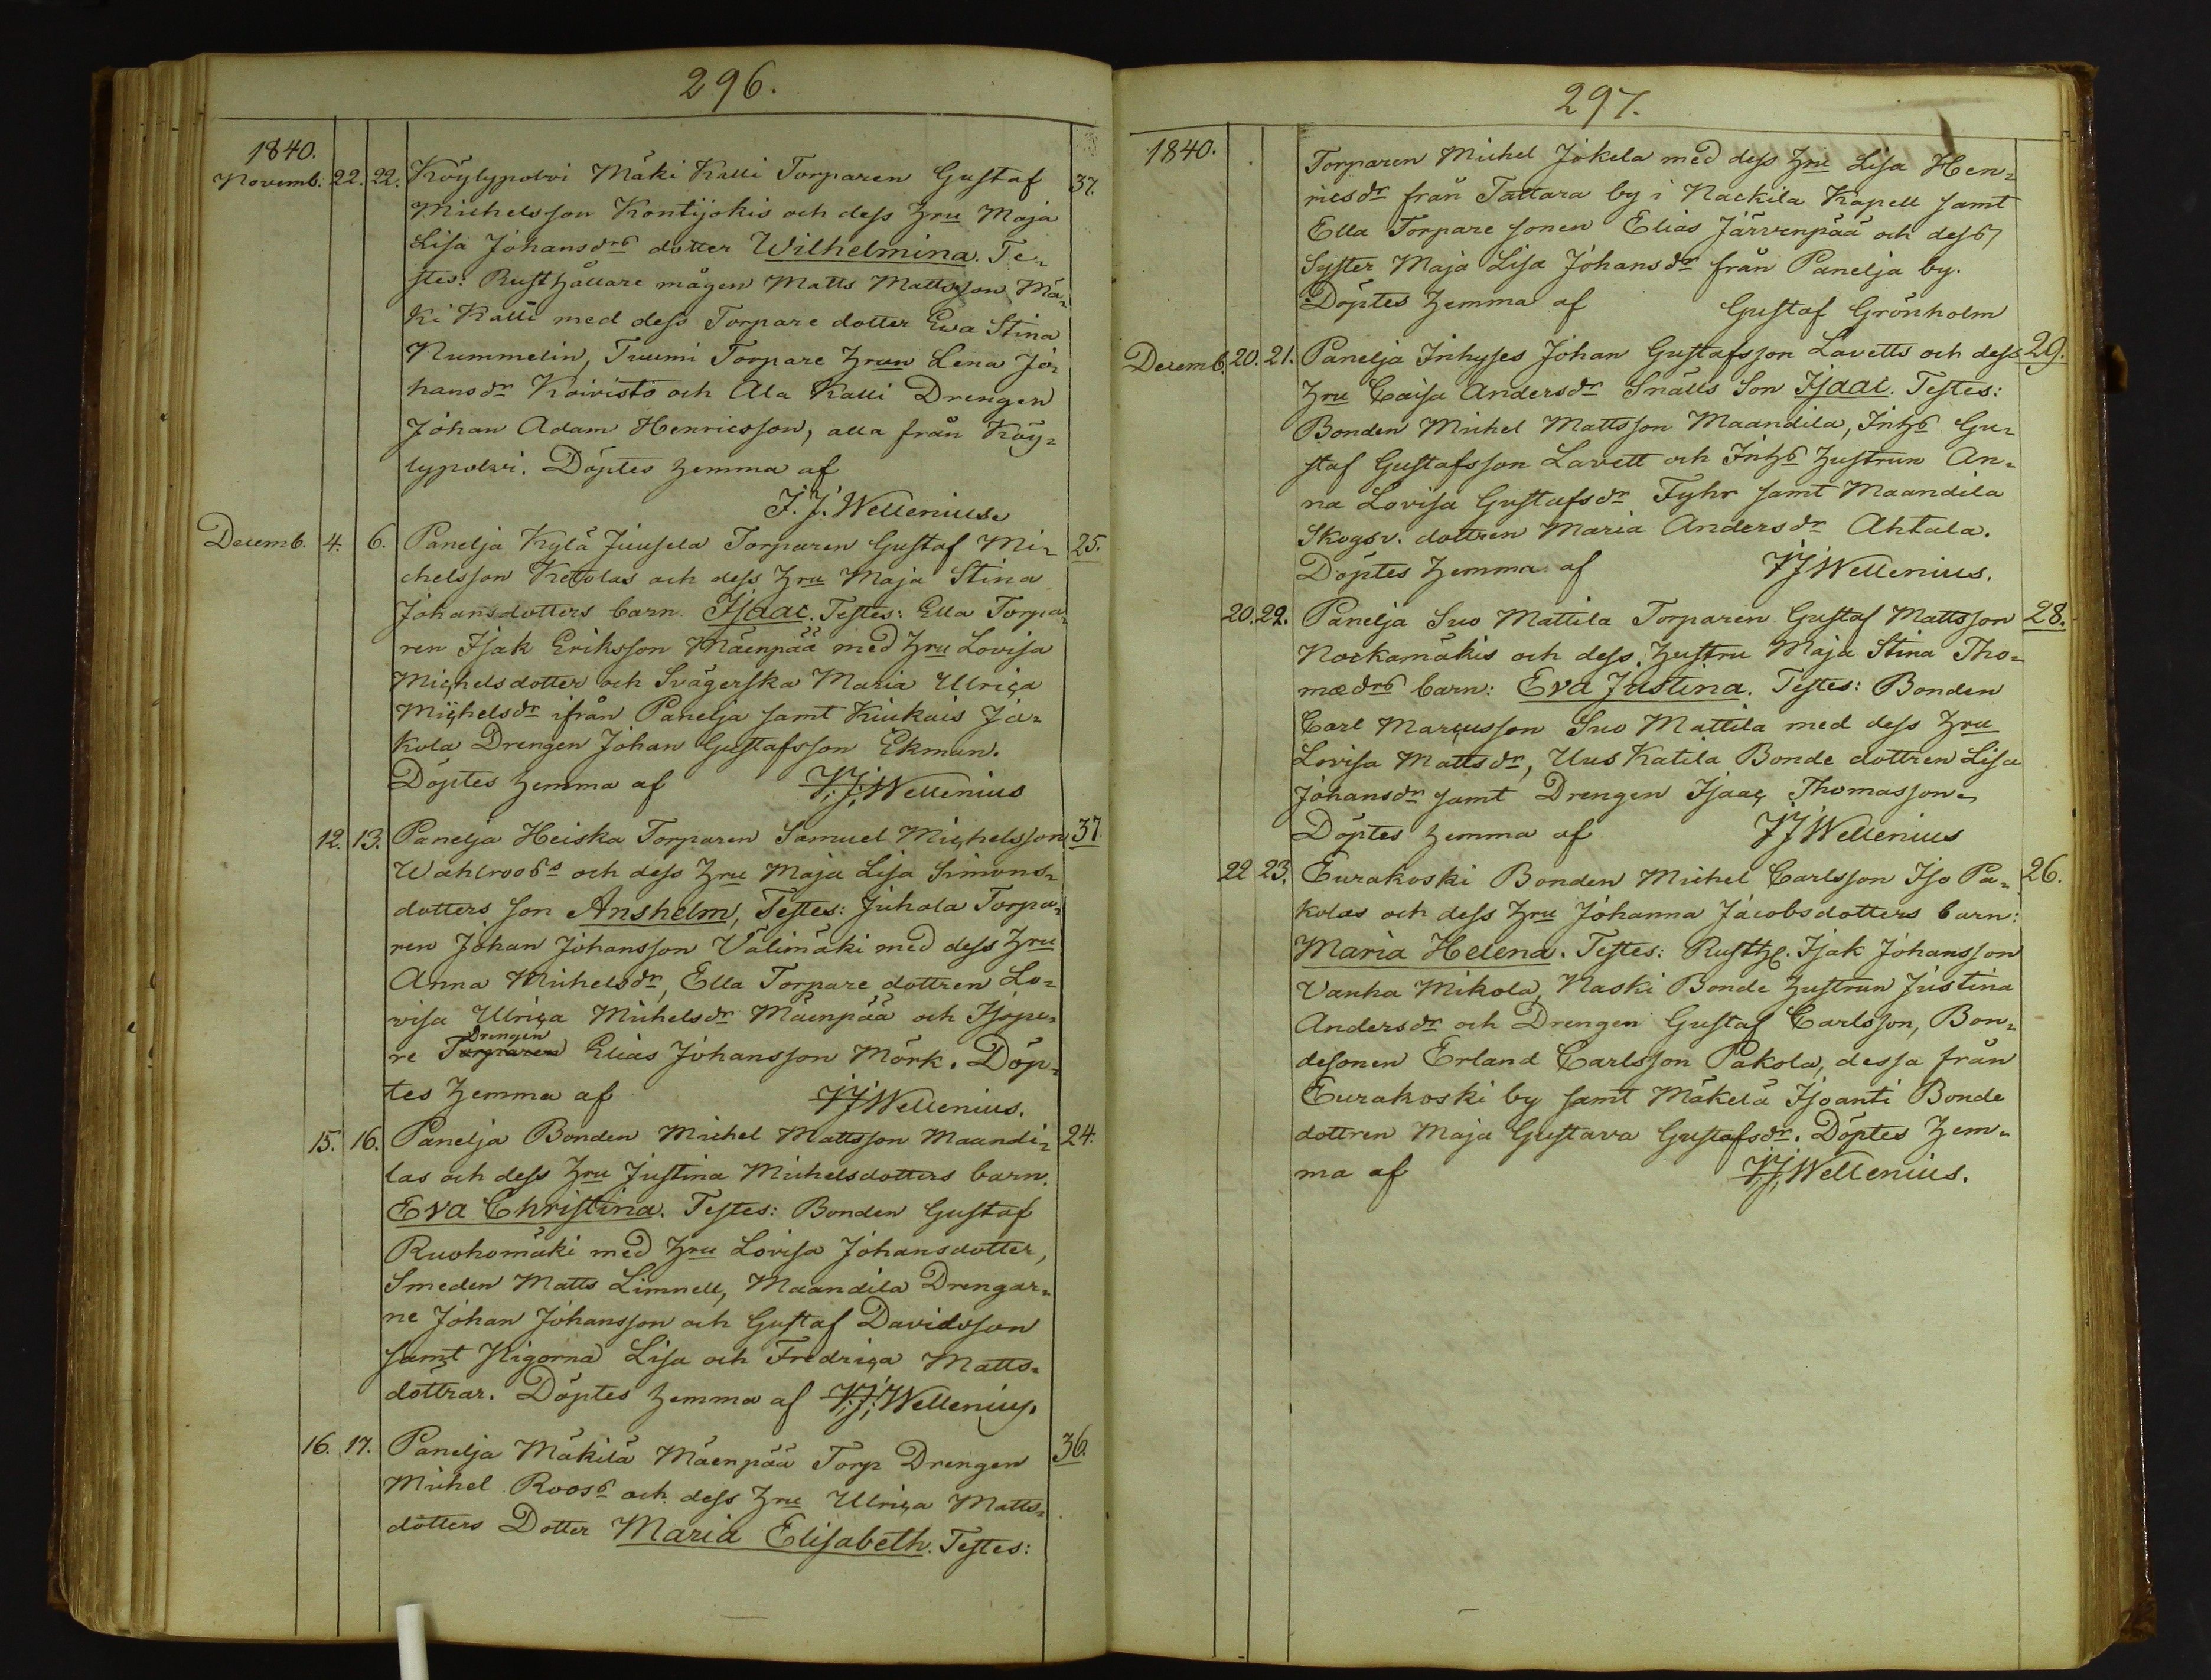 296.
1840.
Novemb. 22. 22. Köylypolvi Mäki Kalli Torparen Gustaf 37.
Michelsson Kontijokis och dess Hru Maja
Lisa Johansdrs dotter Wilhelmina. Te-
stes: Rusthållare mågen Matts Mattsson Mä-
ki Kalli med dess Torpare dotter Ewa Stina
Nummelin, Tuumi Torpare Hrun Lena Jo-
hansdr Koivisto och Ala Kalli Drengen
Johan Adam Henricsson, alla från Köy-
lypolvi. Döptes hemma af
J. J. Wellenius.
Decemb. 4. 6. Panelja Kylä Juusela Torparen Gustaf Mi- 25.
chelsson Ketolas och dess Hru Maja Stina
Johansdotters barn. Isaac. Testes: Ella Torpa-
ren Isak Eriksson Mäenpää med Hru Lovisa
Michelsdotter och Svägerska Maria Ulrica
Michelsdr ifrån Panelja samt Kiukais Ja-
kola Drengen Johan Gustafsson Ekman.
Döptes hemma af J. J. Wellenius
12. 13. Panelja Heiska Torparen Samuel Michelsson 37
Wahlroos och dess Hru Maja Lisa Simons-
dotters son Anshelm, Testes: Juhola Torpa-
ren Johan Johansson Välimäki med dess Hru
Anna Michelsdr, Ella Torpare dottren Lo-
visa Ulrica Michelsdr Mäenpää och Isope-
Drengen
re Torparen Elias Johansson Mörk. Döp-
tes hemma af JJ Wellenius.
15. 16. Panelja Bonden Michel Mattsson Maandi- 24.
las och dess Hru Justina Michelsdotters barn.
Eva Christina. Testes: Bonden Gustaf
Ruohomäki med Hru Lovisa Johansdotter,
Smeden Matts Limnell, Maandila Drengar-
ne Johan Johansson och Gustaf Davidsson
samt Pigorna Lisa och Fredrica Matts-
döttrar. Döptes hemma af J. J. Wellenius.
16. 17. Panelja Mäkilä Mäenpää Torp Drengen 36.
Michel Roos och dess Hru Ulrica Matts-
dotters Dotter Maria Elisabeth. Testes:
297.
1840.
Torparen Michel Jokela med dess Hru Lisa Hen-
ricsdr från Tattara by i Nackila Kapell samt
Ella Torpare sonen Elias Järvenpää och dess
Syster Maja Lisa Johansdr från Panelja by.
Döptes hemma af Gustaf Grönholm
Decemb. 20. 21. Panelja Inhyses Johan Gustafsson Lavetts och dess 29.
Hru Caisa Andersdr Snälls Son Isaac. Testes:
Bonden Michel Mattsson Maandila, Inhs Gu-
staf Gustafsson Lavett och Inhs Hustrun An-
na Lovisa Gustafsdr Fyhr samt Maandila
Skogsv. dottren Maria Andersdr Ahtala.
Döptes hemma af JJ Wellenius.
20. 22. Panelja Suo Mattila Torparen Gustaf Mattsson 28.
Nockamäkis och dess Hustru Maja Stina Tho-
mædrs barn: Eva Justina. Testes: Bonden
Carl Marcusson Suo Mattila med dess Hru
Lovisa Mattsdr, Uus Katila Bonde dottren Lisa
Johansdr samt Drengen Isaac Thomasson.
Döptes hemma af JJ Wellenius
22 23. Eurakoski Bonden Michel Carlsson Iso Pa- 26.
kolas och dess Hru Johanna Jacobsdotters barn:
Maria Helena. Testes: Rusth. Isak Johansson
Vanha Mikola, Naski Bonde hustrun Justina
Andersdr och Drengen Gustaf Carlsson, Bon-
desonen Erland Carlsson Pakola, dessa från
Eurakoski by samt Mäkelä Isoanti Bonde
dottren Maja Gustava Gustafsdr. Döptes hem-
ma af J. J. Wellenius.